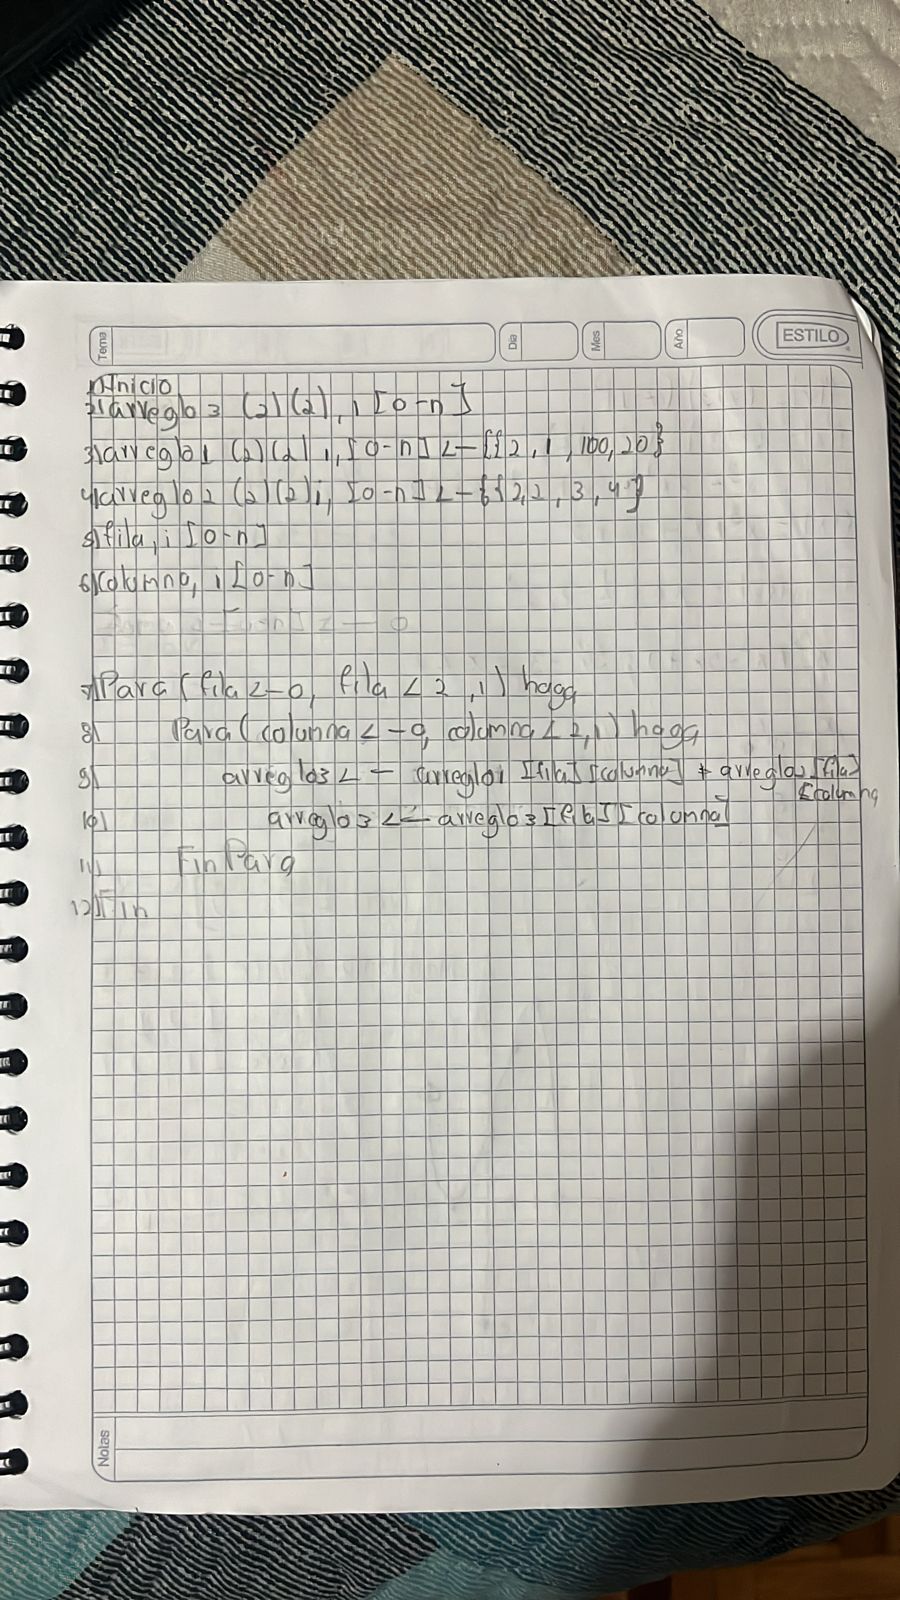 Tema
Día
Mes
Año
ESTILO
1) Inicio
2) arreglo3 (2)(2), i [0-n]
3) arreglo1 (2)(2) i, [0-n] <-{{2, 1, 100, 20}
4) arreglo2 (2)(2) i, [0-n] <-{{2,2, 3, 4}
5) fila, i [0-n]
6) columna, i [0-n]
7) Para (fila <-0, fila < 2, 1) haga
8) Para (columna <-0, columna < 2, 1) haga
9) arreglo3 <- arreglo1 [fila] [columna] + arreglo2 [fila]
[columna
10) arreglo3 <- arreglo3 [fila] [columna]
11) Fin Para
12) Fin
Notas